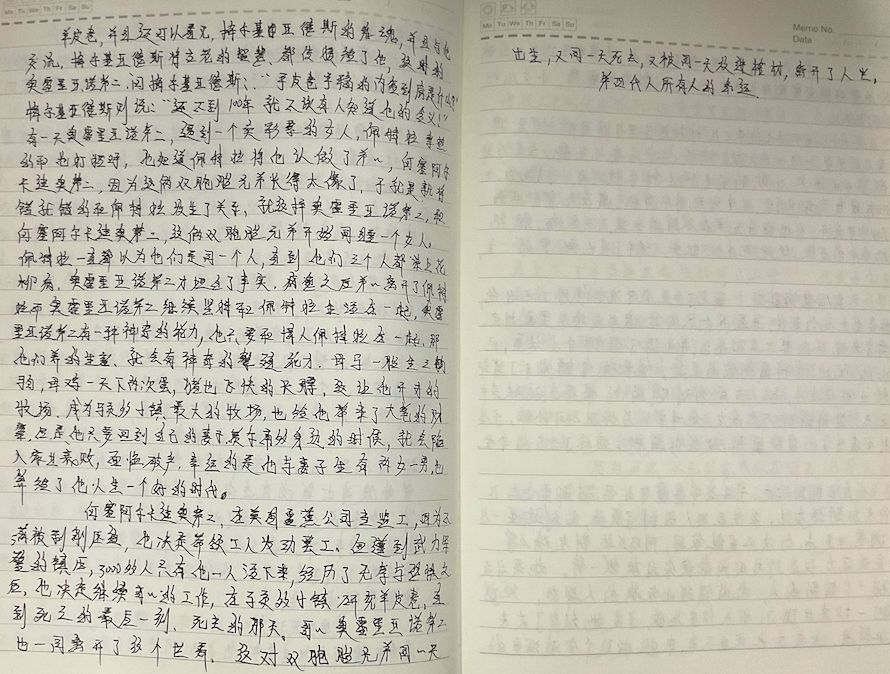 Mo Tu We Th Fr Sa Su
羊皮卷,并且还可以看见,梅尔基亚德斯的鬼魂,并且与他
交流。梅尔基亚德斯将立花的智慧,都传授给了他,这时的
奥雷里亚诺第二,问梅尔基亚德斯:“羊皮卷手稿的内容到底是什么?”
梅尔基亚德斯则说:“还不到100年就不该有人知道他的含义!”
有一天奥雷里亚诺第二,遇到一个卖彩票的女人,佩特拉
的和他打招呼,他知道佩特拉将他认做了弟弟,何塞阿尔
卡迪奥第二,因为这俩双胞胎兄弟长得太像了,于就是就将
错就错的和佩特拉发生了关系,就这样奥雷里亚诺第二,和
何塞阿尔卡迪奥第二,这俩双胞胎兄弟开始同睡一个女人,
佩特拉一直都以为他们是同一个人,直到他们三个人都染上花
柳病,奥雷里亚诺第二才坦白了事实,病愈之后弟弟离开了佩特
拉而奥雷里亚诺第二继续坚持和佩特拉生活在一起,奥雷
里亚诺第二有一种神奇的能力,他只要和情人佩特拉在一起,那
他们养的牲畜,就会有神奇的繁殖能力,母马一胎生三驹
,母鸡一天下两次蛋,猪也飞快的长膘,这让他开办的
牧场,成为了小镇最大的牧场,也给他带来了大笔的财
富,但是他只要回到自己的妻子身边的时候,就会陷
入衰败,面临破产,幸运的是他与妻子生有两女一男,也
算经了他人生一个好的时代。
何塞阿尔卡迪奥第二,在美国香蕉公司当监工,因为不
满被剥削压迫,他决定带领工人发动罢工。但遭到武力军
的镇压,3000多人只有他一人活下来,经历了之
后,他决定继续哥哥的工作,在研究羊皮卷,直
到死亡的最后一刻,死去的那天,哥哥奥雷里亚诺第二
也一同离开了这个世界,这对双胞胎兄弟同一天
Mo Tu We Th Fr Sa Su
Memo No.
Date
出生,又同一天死去,又被同一天放进棺材,离开了人世,
第四代人所有人的命运